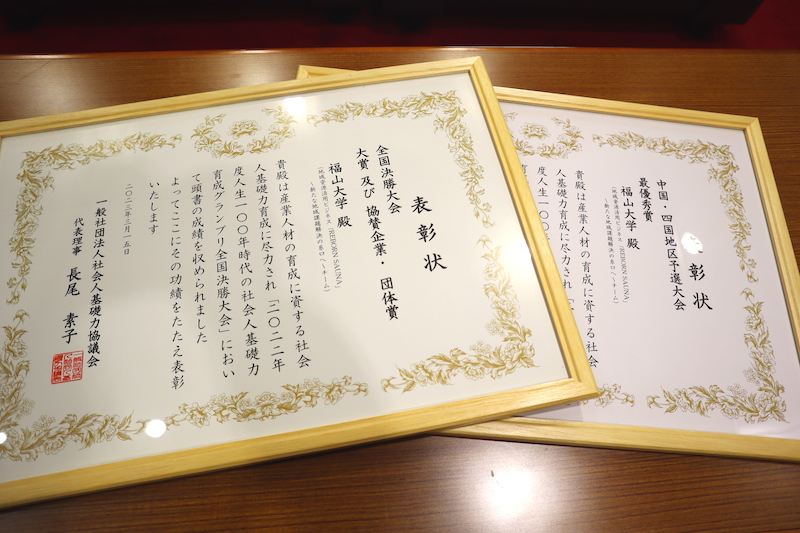 表彰状
全国決勝大会
大賞 及び 協賛企業・団体賞
福山大学 殿
(地域資源活用ビジネス「REBORN SAUNA」
~新たな地域課題解決の糸口へ~チーム)
貴殿は産業人材の育成に資する社会
人基礎力育成に尽力され「二〇二二年
度人生一〇〇年時代の社会人基礎力
育成グランプリ全国決勝大会」におい
て頭書の成績を収められました
よってここにその功績をたたえ表彰
いたします
二〇二三年二月一五日
一般社団法人社会人基礎力協議会
代表理事 長尾 素子
彰状
中国・四国地区予選大会
最優秀賞
福山大学 殿
(地域資源活用ビジネス「REBORN SAUNA」
~新たな地域課題解決の糸口へ~チーム)
貴殿は産業人材の育成に資する社会
人基礎力育成に尽力され「二
度人生一〇〇